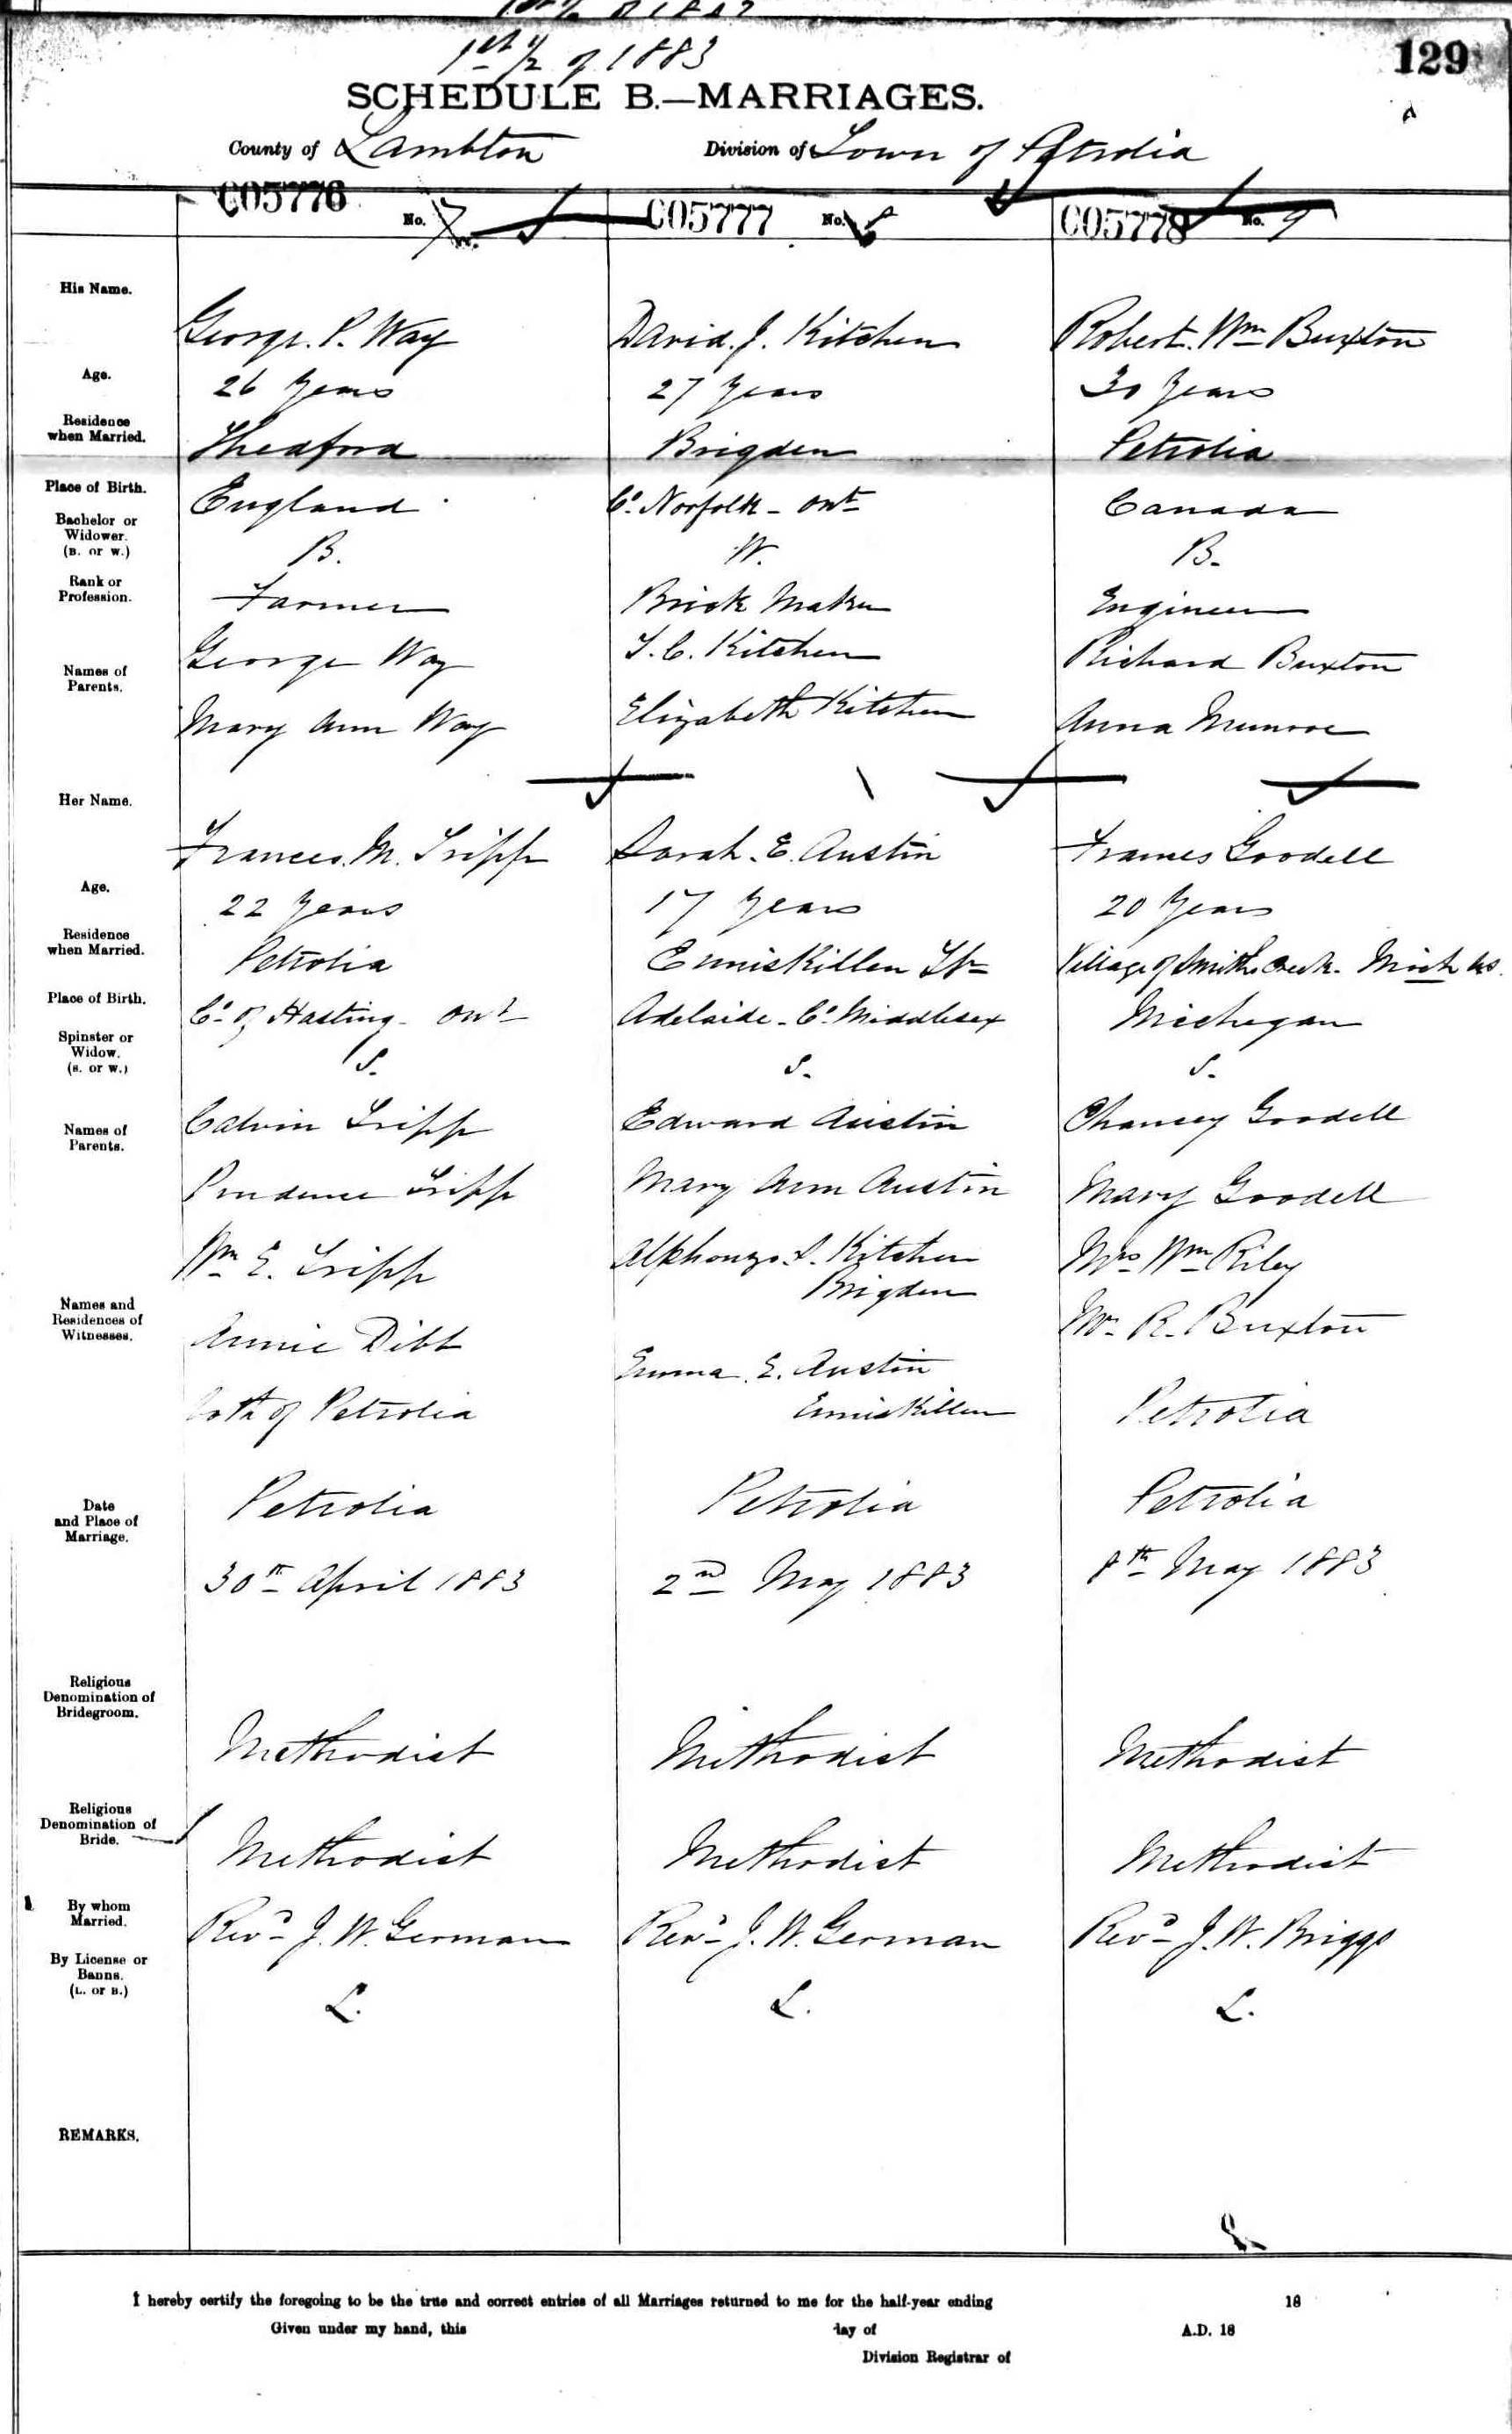 1st ½ of 1883
129
SCHEDULE B.—MARRIAGES.
County of Lambton Division of Town of Petrolia
C05776 No. 7 C05777 No. 8 C05778 No. 9
His Name.
George. P. Way David. J. Kitchen Robert. Wm Buxton
Age.
26 Years 27 Years 30 Years
Residence
when Married.
Thedford Brigden Petrolia
Place of Birth.
England Co. Norfolk - Ont Canada
Bachelor or
Widower.
(B. or W.)
B. W. B.
Rank or
Profession.
Farmer Brick Maker Engineer
Names of
Parents.
George Way T. C. Kitchen Richard Buxton
Mary Ann Way Elizabeth Kitchen Anna Munroe
Her Name.
Frances. M. Tripp Sarah. E. Austin Frances Goodell
Age.
22 Years 17 Years 20 Years
Residence
when Married.
Petrolia Enniskillen Tp Village of Smiths Creek. Mich US.
Place of Birth.
Co. of Hasting - Ont Adelaide - Co. Middlesex Michegan
Spinster or
Widow.
(S. or W.)
S. S. S.
Names of
Parents.
Calvin Tripp Edward Austin Chancey Goodell
Prudence Tripp Mary Ann Austin Mary Goodell
Names and
Residences of
Witnesses.
Wm E. Tripp Alphonzo. S. Kitchen Mrs Wm Riley
Brigden
Annie Dibb Emma. E. Austin Mr R. Buxton
both of Petrolia Enniskillen Petrolia
Date
and Place of
Marriage.
Petrolia Petrolia Petrolia
30th April 1883 2nd May 1883 8th May 1883
Religious
Denomination of
Bridegroom.
Methodist Methodist Methodist
Religious
Denomination of
Bride.
Methodist Methodist Methodist
By whom
Married.
Revd J. W. German Revd J. W. German Revd J. W. Briggs
By License or
Banns.
(L. or B.)
L. L. L.
REMARKS.
I hereby certify the foregoing to be the true and correct entries of all Marriages returned to me for the half-year ending 18
Given under my hand, this day of A.D. 18
Division Registrar of